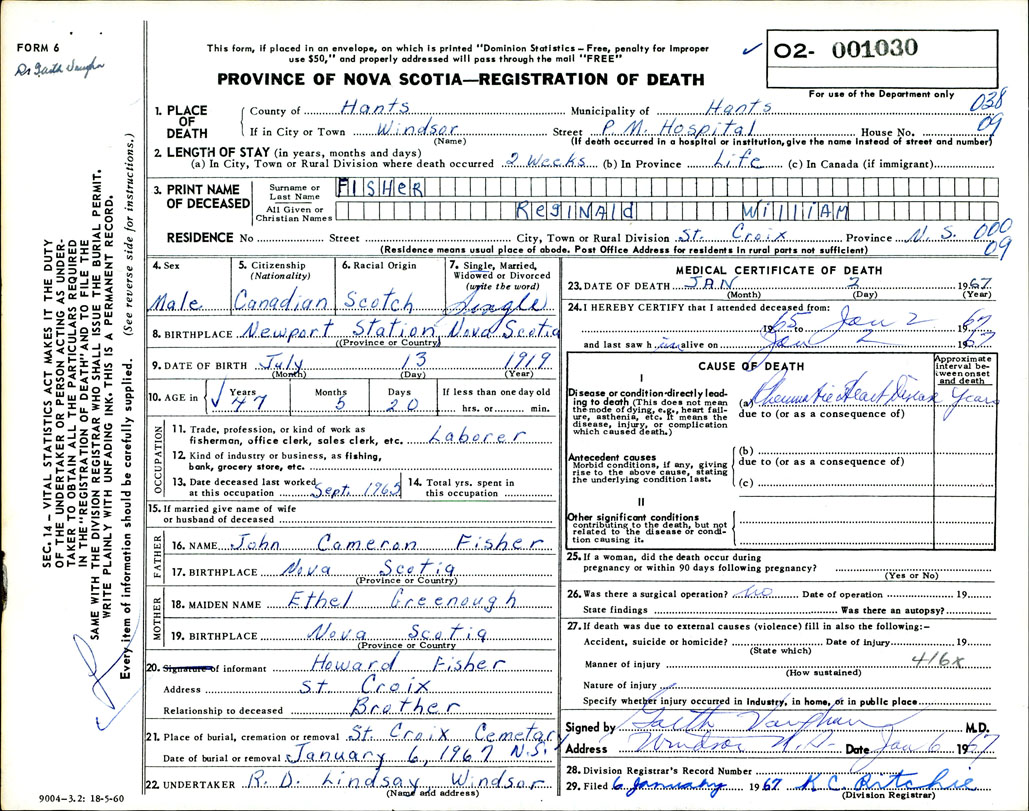 FORM 6
Dr Garth Vaughn
This form, if placed in an envelope, on which is printed "Dominion Statistics – Free, penalty for improper
use $50," and properly addressed will pass through the mail "FREE"
✓ O2- 001030
PROVINCE OF NOVA SCOTIA—REGISTRATION OF DEATH
For use of the Department only
038
09
1. PLACE OF DEATH
County of Hants Municipality of Hants
If in City or Town Windsor Street P. M. Hospital House No.
(Name) (If death occurred in a hospital or institution, give the name instead of street and number)
2. LENGTH OF STAY (in years, months and days)
(a) In City, Town or Rural Division where death occurred 2 Weeks (b) In Province Life (c) In Canada (if immigrant)
3. PRINT NAME OF DECEASED
Surname or Last Name FISHER
All Given or Christian Names REGINALD WILLIAM
RESIDENCE No Street City, Town or Rural Division St. Croix Province N. S.
000
09
(Residence means usual place of abode. Post Office Address for residents in rural parts not sufficient)
4. Sex Male
5. Citizenship (Nationality) Canadian
6. Racial Origin Scotch
7. Single, Married, Widowed or Divorced (write the word) Single
8. BIRTHPLACE Newport Station Nova Scotia
(Province or Country)
9. DATE OF BIRTH July 13 1919
(Month) (Day) (Year)
10. AGE in ✓ Years 47 Months 5 Days 20 If less than one day old hrs. or min.
OCCUPATION
11. Trade, profession, or kind of work as fisherman, office clerk, sales clerk, etc. Laborer
12. Kind of industry or business, as fishing, bank, grocery store, etc.
13. Date deceased last worked at this occupation Sept. 1965
14. Total yrs. spent in this occupation
15. If married give name of wife or husband of deceased
FATHER
16. NAME John Cameron Fisher
17. BIRTHPLACE Nova Scotia
(Province or Country)
MOTHER
18. MAIDEN NAME Ethel Greenough
19. BIRTHPLACE Nova Scotia
(Province or Country
20. Signature of informant Howard Fisher
Address St Croix
Relationship to deceased Brother
21. Place of burial, cremation or removal St. Croix Cemetary
Date of burial or removal January 6, 1967 N.S.
22. UNDERTAKER R. D. Lindsay Windsor
(Name and address)
MEDICAL CERTIFICATE OF DEATH
23. DATE OF DEATH JAN 2 1967
(Month) (Day) (Year)
24. I HEREBY CERTIFY that I attended deceased from:
1965 to Jan 2 1967
and last saw h im alive on Jan 2 1967
CAUSE OF DEATH
Approximate interval between onset and death
I
Disease or condition directly leading to death (This does not mean the mode of dying, e.g., heart failure, asthenia, etc. It means the disease, injury, or complication which caused death.)
(a) Rheumatic Heart Disease Years
due to (or as a consequence of)
Antecedent causes
Morbid conditions, if any, giving rise to the above cause, stating the underlying condition last.
(b)
due to (or as a consequence of)
(c)
II
Other significant conditions contributing to the death, but not related to the disease or condition causing it.
25. If a woman, did the death occur during pregnancy or within 90 days following pregnancy?
(Yes or No)
26. Was there a surgical operation? no Date of operation 19
State findings Was there an autopsy?
27. If death was due to external causes (violence) fill in also the following:–
Accident, suicide or homicide? Date of injury 19
(State which)
Manner of injury 416x
(How sustained)
Nature of injury
Specify whether injury occurred in industry, in home, or in public place
Signed by Garth Vaughan M.D.
Address Windsor N.S. Date Jan 6 1967
28. Division Registrar's Record Number
29. Filed 6 January 1967 K C Ritchie
(Division Registrar)
SEC. 14 – VITAL STATISTICS ACT MAKES IT THE DUTY
OF THE UNDERTAKER OR PERSON ACTING AS UNDER-
TAKER TO OBTAIN ALL THE PARTICULARS REQUIRED
IN THE "REGISTRATION OF DEATH" AND TO FILE THE
SAME WITH THE DIVISION REGISTRAR WHO SHALL ISSUE THE BURIAL PERMIT.
WRITE PLAINLY WITH UNFADING INK. THIS IS A PERMANENT RECORD.
Every item of information should be carefully supplied. (See reverse side for instructions.)
9004–3.2: 18-5-60